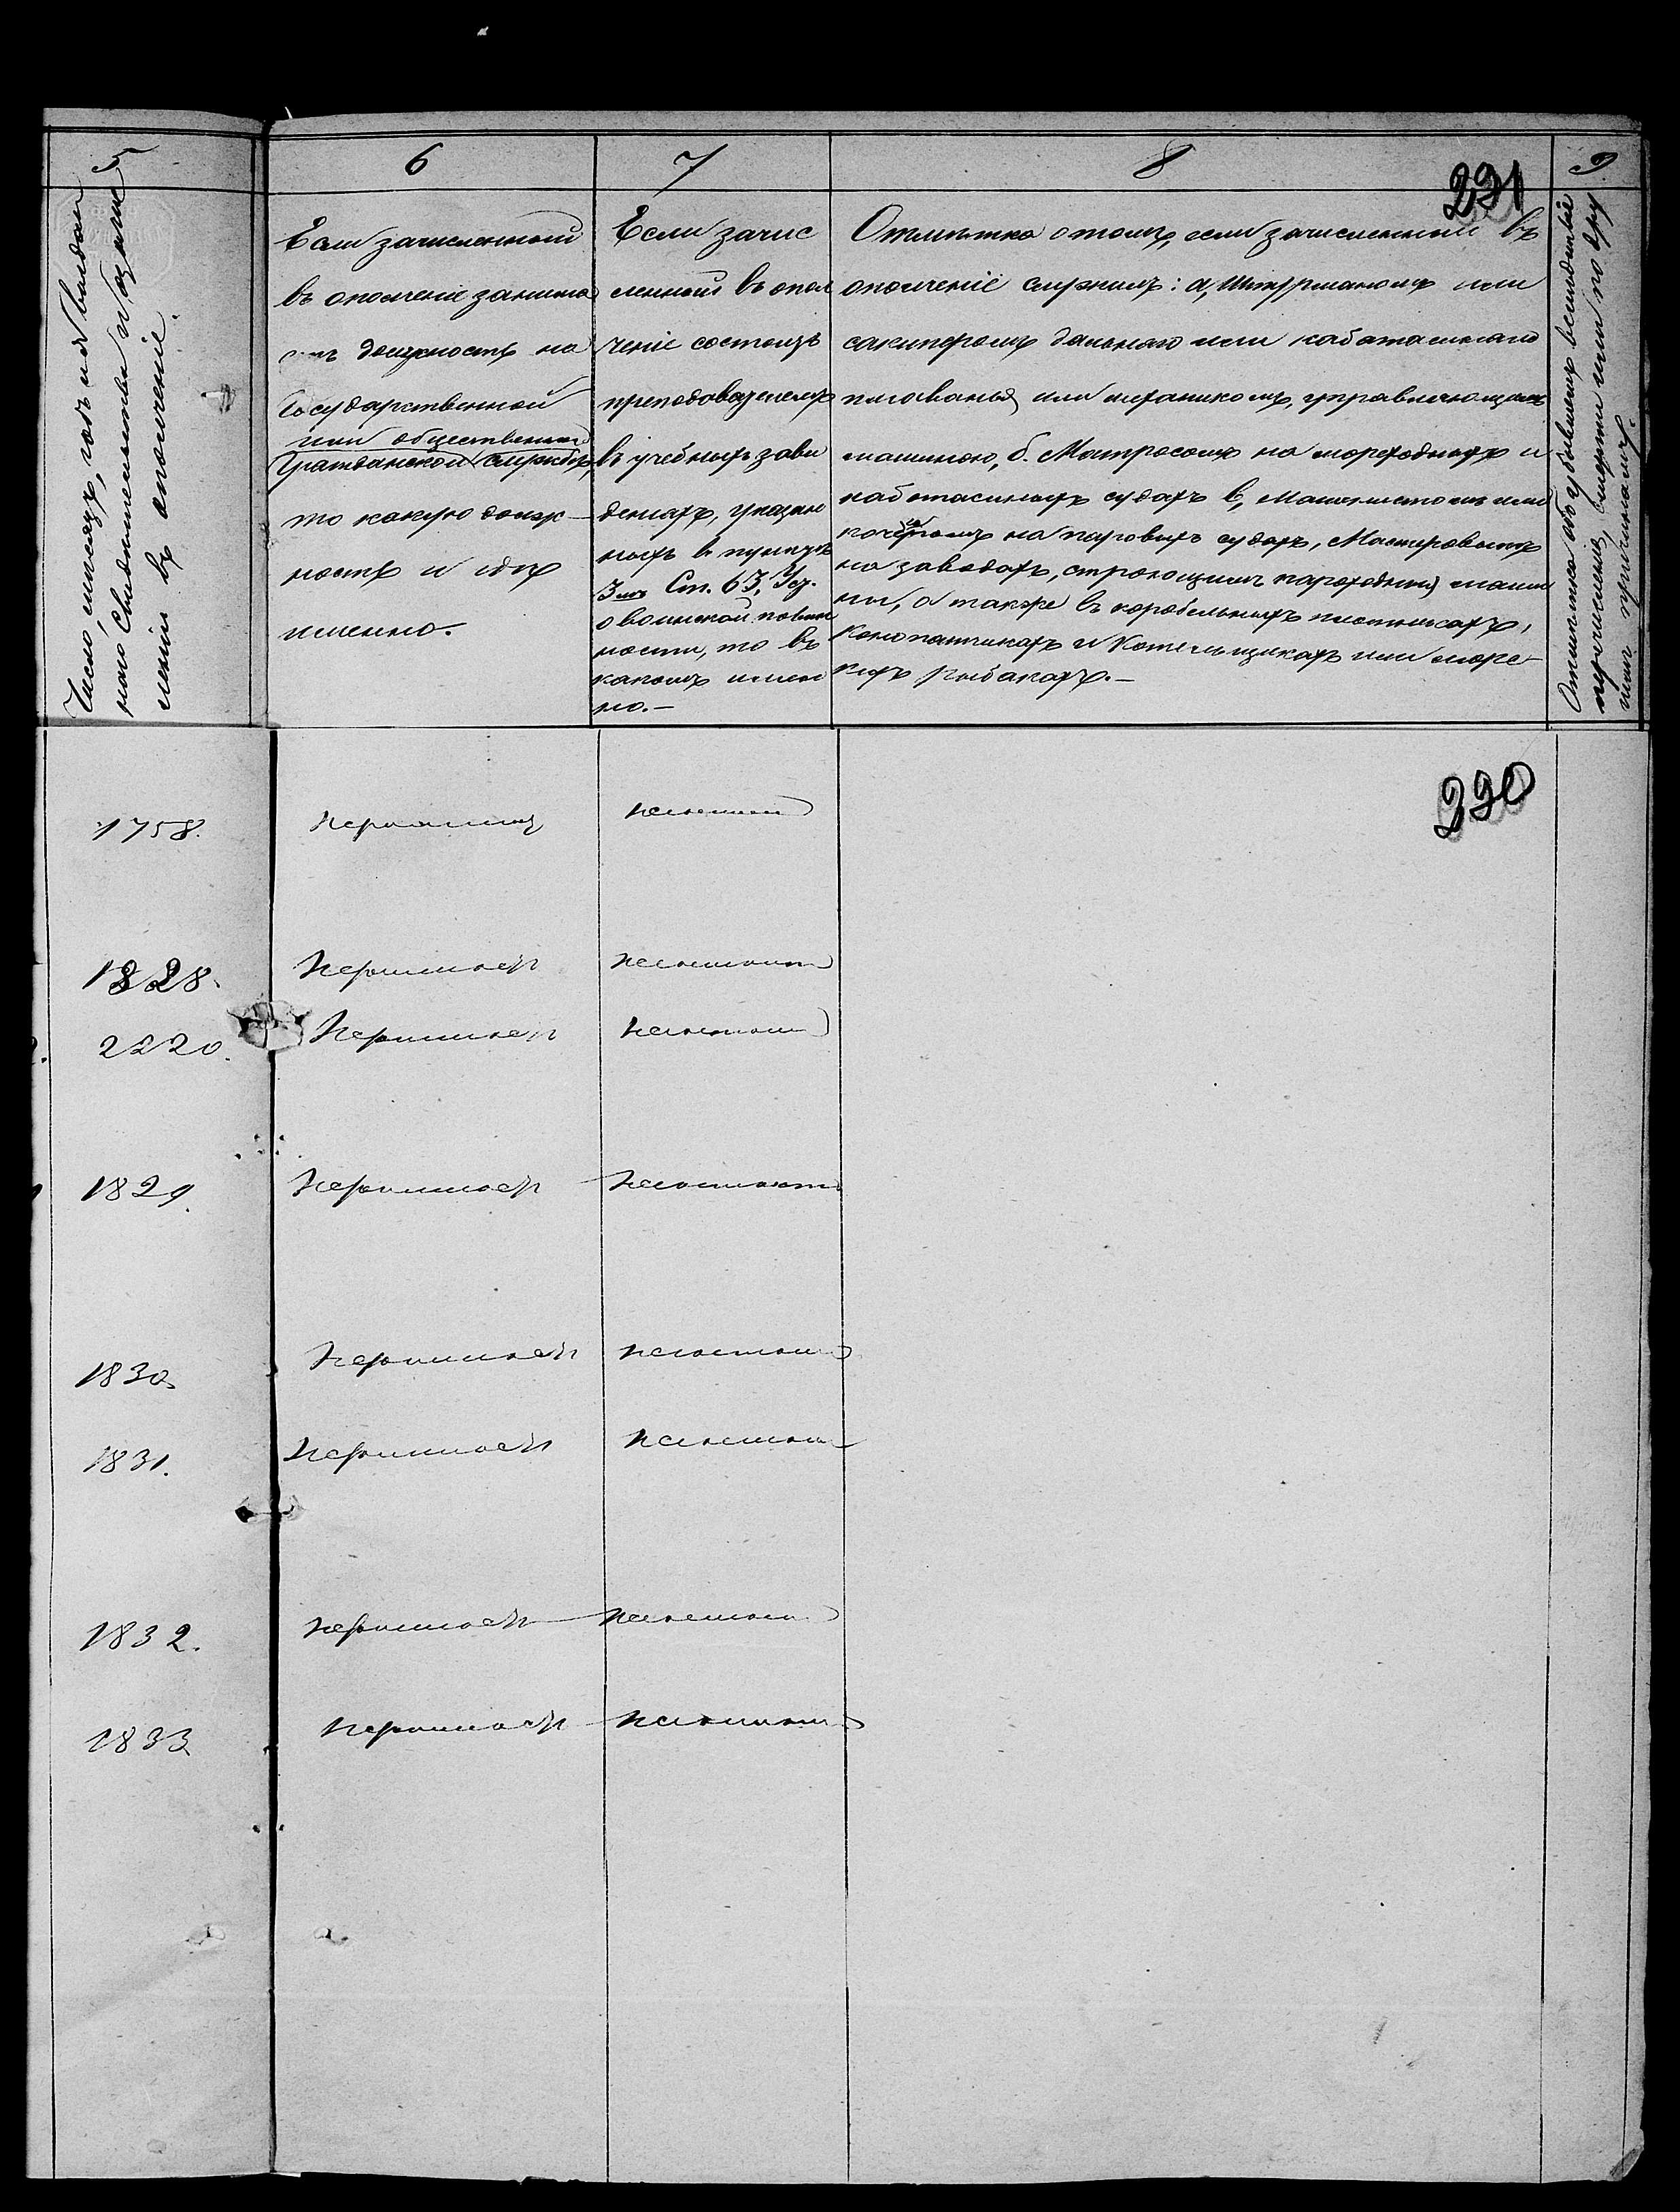 5
6
7
8
9
231
Число, мѣсяцъ, годъ и № выдан
наго свидѣтельства о зачис
леніи въ ополченіе.
Если зачисленный
въ ополченіе занима
етъ должность на
Государственной
или общественной
Гражданской службѣ,
то какую долж-
ность и гдѣ
именно.
Если зачис
ленный въ опол
ченіе состоитъ
преподавателемъ
въ учебныхъ заве
деніяхъ, указан
ныхъ въ пунктѣ
3мъ Ст. 63, Уст.
о воинской повин
ности, то въ
какомъ имен
но.—
Отмѣтка о томъ, если зачисленный въ
ополченіе служилъ: а, Штурманомъ или
шкиперомъ дальнаго или каботажнаго
плаванья, или механикомъ, управляющимъ
машиною, б. Матросомъ на мореходныхъ и
каботажныхъ судахъ в, Машинистомъ или
кочегаромъ на паровыхъ судахъ, Мастеровымъ
на заводахъ, строющихъ пароходныя маши
ны, а также въ корабельныхъ плотникахъ,
Конопатчикахъ и Котельщикахъ или морс-
кихъ рыбакахъ.—
Отмѣтка объ убывшихъ вслѣдствіе
перечисленія, смерти или по дру
гимъ причинамъ.
230
1758. Нерашнец несостоит
1828. Нерашнец несостоит
2220. Нерашнец несостоит
1829. Нерашнец несостоит
1830. Нерашнец несостоит
1831. Нерашнец несостоит
1832. Нерашнец несостоит
1833 Нерашнец несостоит